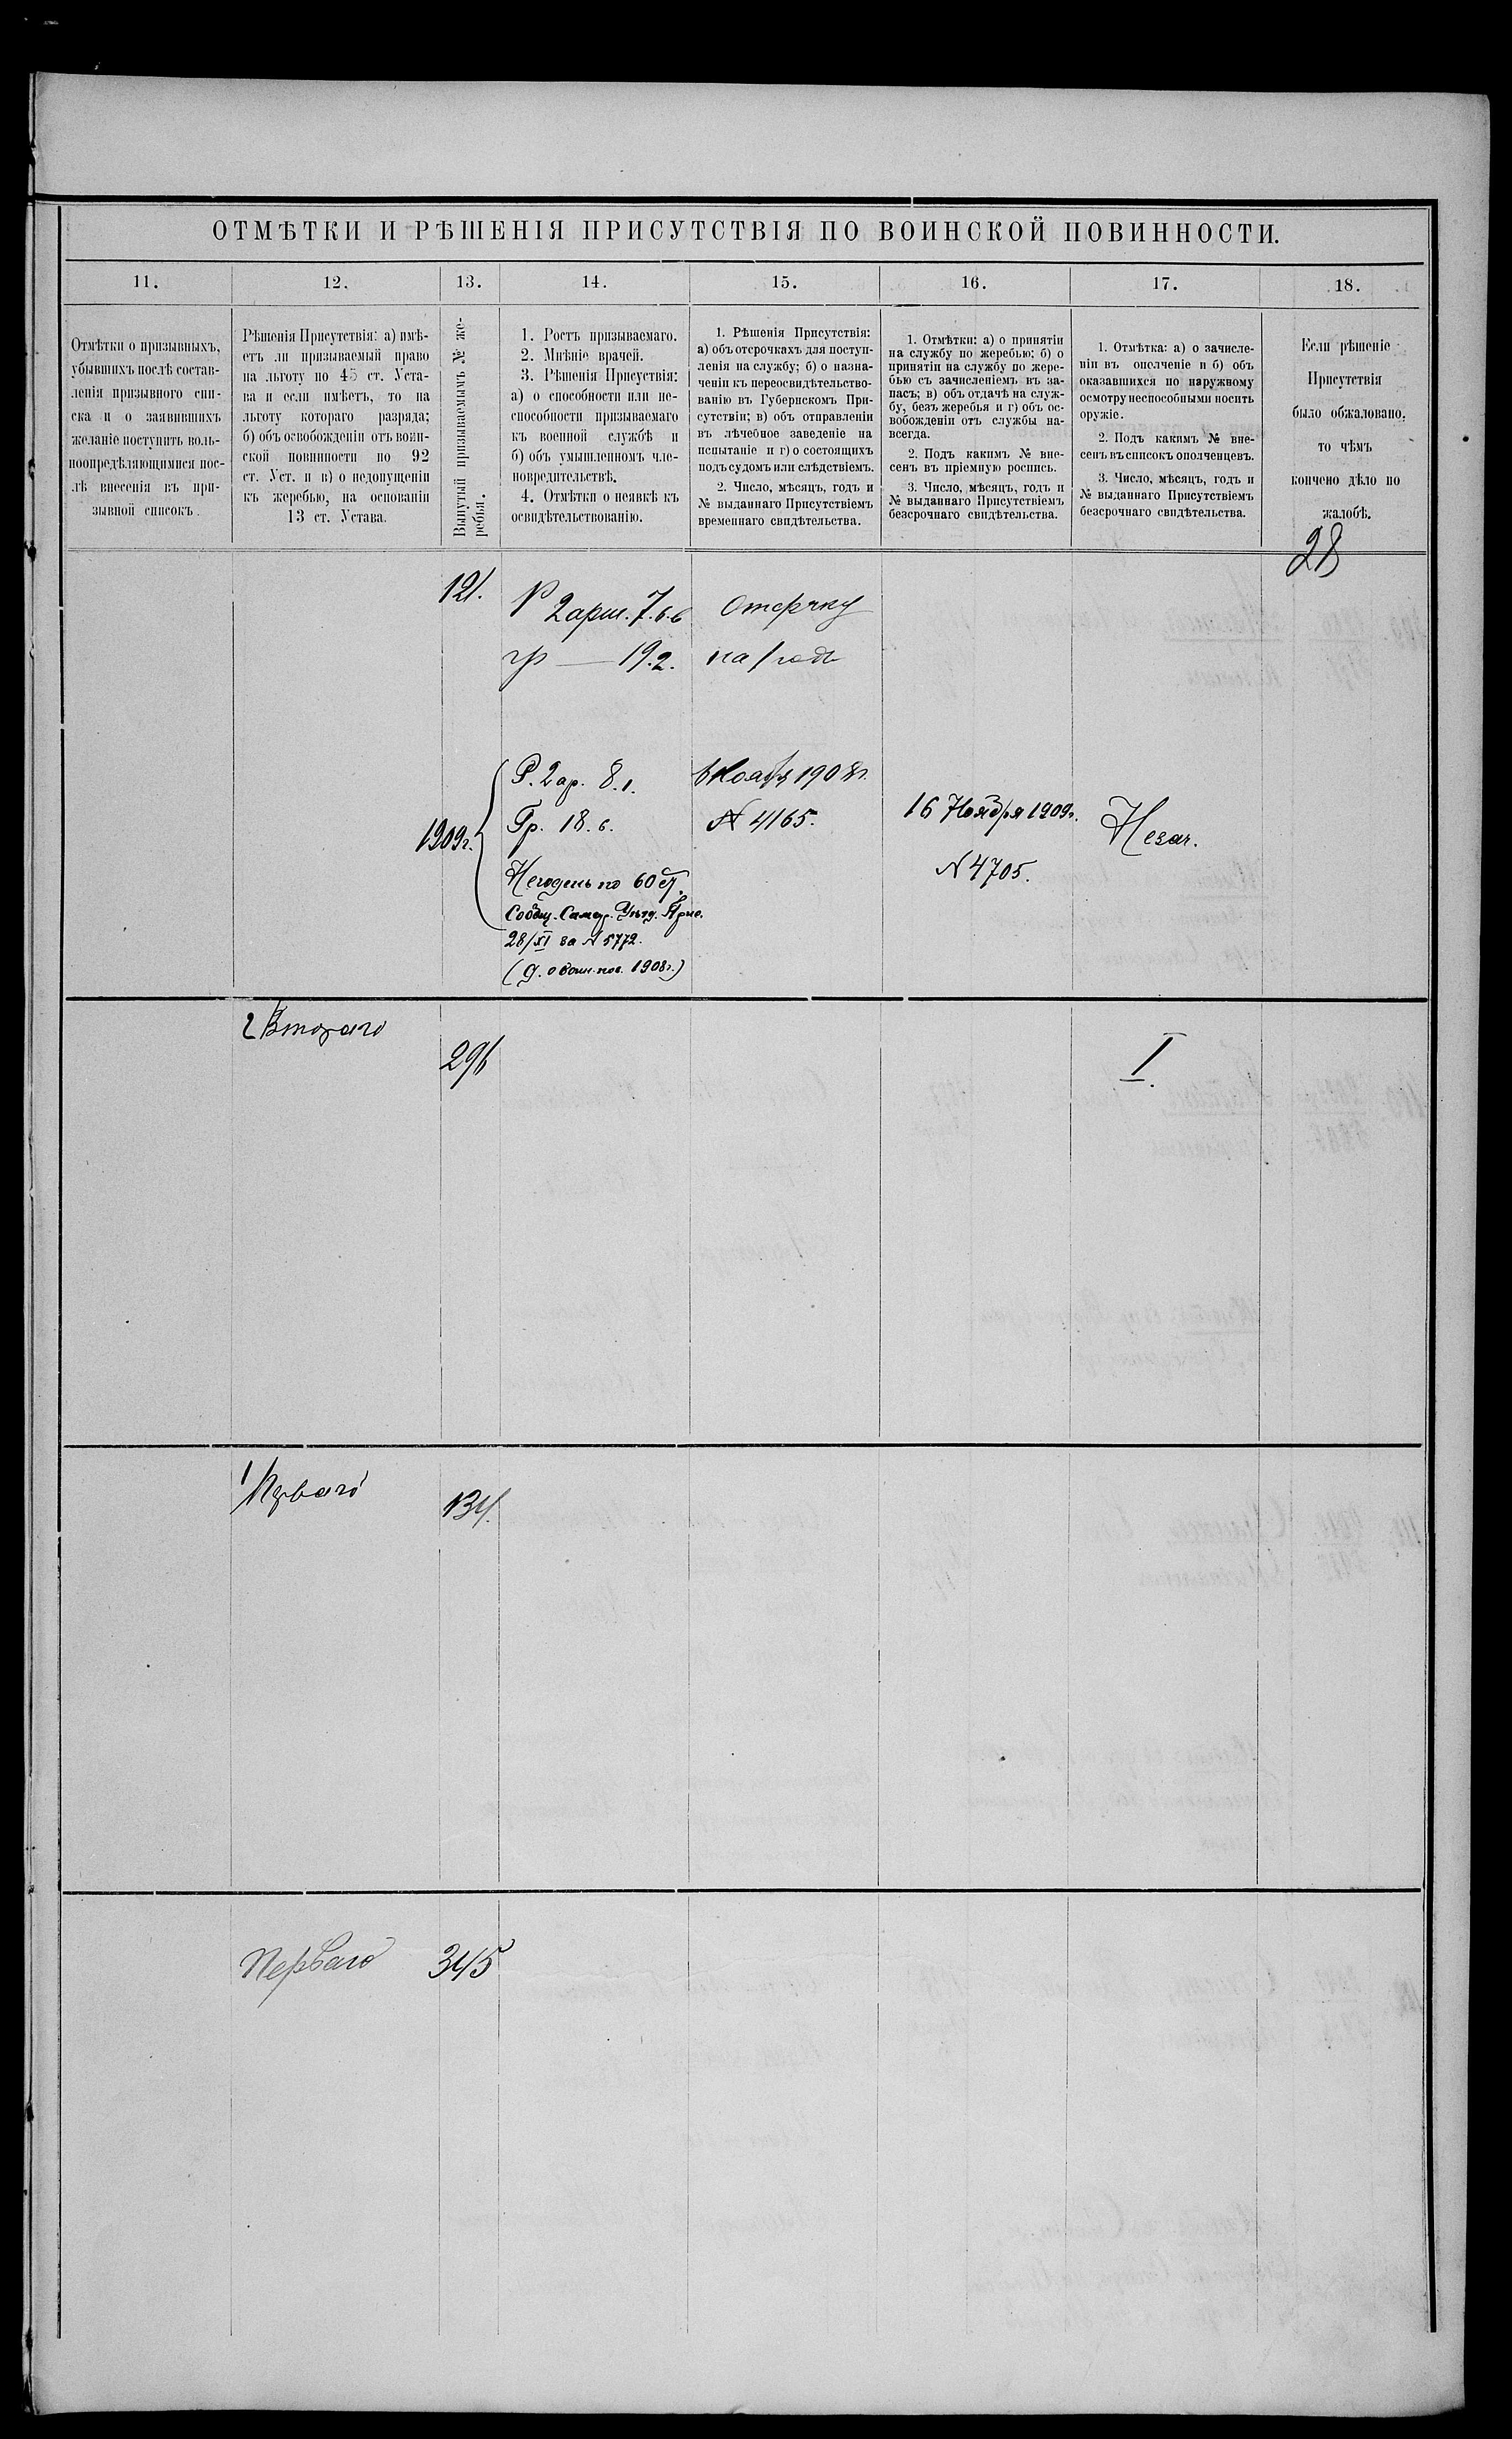 ОТМѢТКИ И РѢШЕНІЯ ПРИСУТСТВІЯ ПО ВОИНСКОЙ ПОВИННОСТИ.
11.
12.
13.
14.
15.
16.
17.
18.
Отмѣтки о призывныхъ,
убывшихъ послѣ состав-
ленія призывного спи-
ска и о заявившихъ
желаніе поступить воль-
ноопредѣляющимися пос-
лѣ внесенія въ при-
зывной списокъ.
Рѣшенія Присутствія: а) имѣ-
етъ ли призываемый право
на льготу по 45 ст. Уста-
ва и если имѣетъ, то на
льготу котораго разряда;
б) объ освобожденіи отъ воин-
ской повинности по 92
ст. Уст. и в) о недопущеніи
къ жеребью, на основаніи
13 ст. Устава.
Вынутый призываемымъ № же-
ребья.
1. Ростъ призываемаго.
2. Мнѣніе врачей.
3. Рѣшенія Присутствія:
а) о способности или не-
способности призываемаго
къ военной службѣ и
б) объ умышленномъ чле-
новредительствѣ.
4. Отмѣтки о неявкѣ къ
освидѣтельствованію.
1. Рѣшенія Присутствія:
а) объ отсрочкахъ для поступ-
ленія на службу; б) о назна-
ченіи къ переосвидѣтельство-
ванію въ Губернскомъ При-
сутствіи; в) объ отправленіи
въ лѣчебное заведеніе на
испытаніе и г) о состоящихъ
подъ судомъ или слѣдствіемъ.
2. Число, мѣсяцъ, годъ и
№ выданнаго Присутствіемъ
временнаго свидѣтельства.
1. Отмѣтки: а) о принятіи
на службу по жеребью; б) о
принятіи на службу по жере-
бью съ зачисленіемъ въ за-
пасъ; в) объ отдачѣ на служ-
бу, безъ жеребья и г) объ ос-
вобожденіи отъ службы на-
всегда.
2. Подъ какимъ № вне-
сенъ въ пріемную роспись.
3. Число, мѣсяцъ, годъ и
№ выданнаго Присутствіемъ
безсрочнаго свидѣтельства.
1. Отмѣтка: а) о зачисле-
ніи въ ополченіе и б) объ
оказавшихся по наружному
осмотру неспособными носить
оружіе.
2. Подъ какимъ № вне-
сенъ въ списокъ ополченцевъ.
3. Число, мѣсяцъ, годъ и
№ выданнаго Присутствіемъ
безсрочнаго свидѣтельства.
Если рѣшеніе
Присутствія
было обжаловано,
то чѣмъ
кончено дѣло по
жалобѣ.
28
121.
Р 2 арш. 7. в. 6
гр — 19.2.
Отсрочку
на 1 годъ
1909г.
Р. 2 ар. 8.1.
Гр. 18.6.
Негоденъ по 60 ст.
Сообщ. Самар. Уѣзд. Прис.
28/XI за № 5772.
(д. о воин. пов. 1908 г.)
6 Ноября 1908 г.
№ 4165.
16 Ноября 1909 г.
№ 4705.
Незач.
2 Втораго
296
I.
1 Перваго
134.
Перваго
345